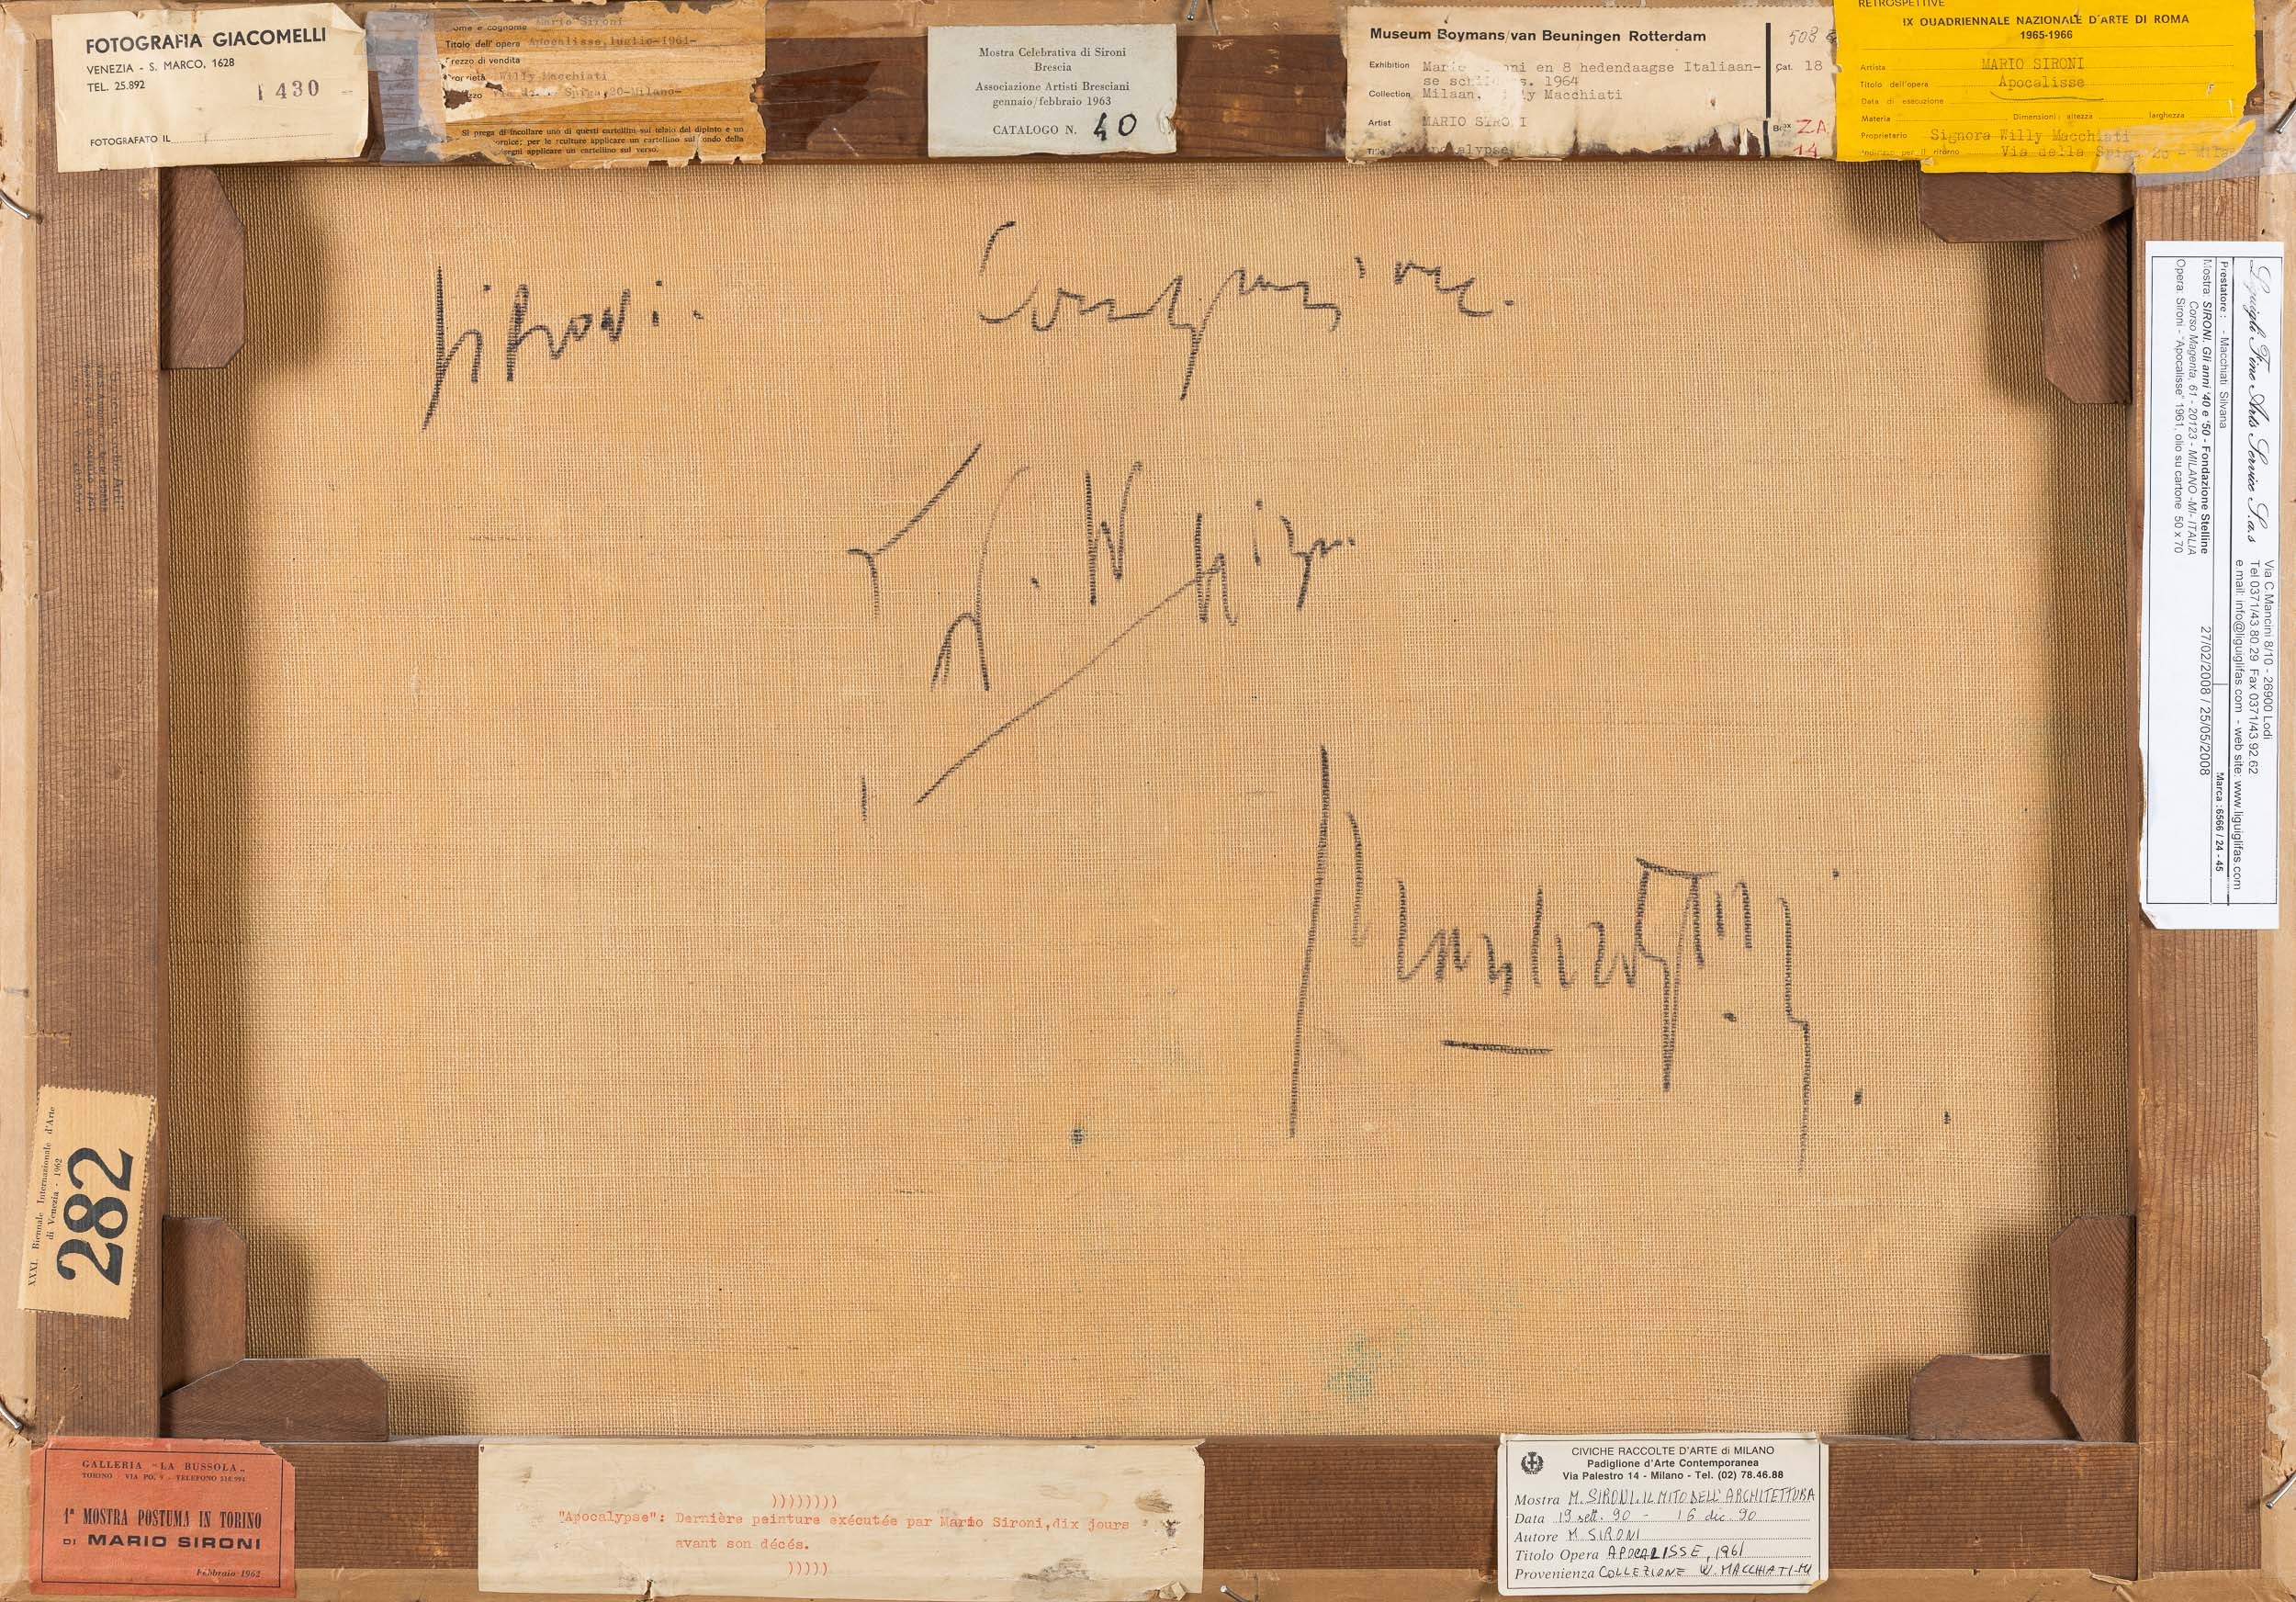 FOTOGRAFIA GIACOMELLI
VENEZIA - S. MARCO, 1628
TEL. 25.892
430
FOTOGRAFATO IL
ome e cognome Mario Sironi
Titolo dell'opera Apocalisse, luglio-1961-
rezzo di vendita
Willy Macchiati
Spiga, 20-Milano-
Si prega di incollare uno di questi cartellini sul telaio del dipinto e un
ornice; per le sculture applicare un cartellino sul fondo della
segni applicare un cartellino sul verso.
Mostra Celebrativa di Sironi
Brescia
Associazione Artisti Bresciani
gennaio/febbraio 1963
CATALOGO N. 40
Museum Boymans/van Beuningen Rotterdam
Exhibition Mario Sironi en 8 hedendaagse Italiaan-
se schilders. 1964
Collection Milaan, Willy Macchiati
Artist MARIO SIRONI
508
Cat. 18
Box ZA
14
RETROSPETTIVE
IX QUADRIENNALE NAZIONALE D'ARTE DI ROMA
1965-1966
Artista MARIO SIRONI
Titolo dell'opera Apocalisse
Data di esecuzione
Materia Dimensioni: altezza larghezza
Proprietario Signora Willy Macchiati
per il ritorno Via della Spiga 20 - Mila
Sironi.
Composizione.
Liguigli Fine Arts Service S.a.s
Via C.Mancini 8/10 - 26900 Lodi
Tel 0371/43.80.29 Fax 0371/43.92.62
e mail: info@liguiglifas.com - web site: www.liguiglifas.com
Prestatore: - Macchiati Silvana
Marca : 6566 / 24 - 45
Mostra: SIRONI. Gli anni '40 e '50 - Fondazione Stelline
27/02/2008 / 25/05/2008
Corso Magenta, 61 - 20123 - MILANO -MI- ITALIA
Opera: Sironi - "Apocalisse" 1961, olio su cartone 50 x 70
XXXI Biennale Internazionale d'Arte
di Venezia - 1962
282
GALLERIA "LA BUSSOLA"
TORINO VIA PO, 9 - TELEFONO
1ª MOSTRA POSTUMA IN TORINO
DI MARIO SIRONI
Febbraio 1962
))))))))
"Apocalypse": Dernière peinture exécutée par Mario Sironi,dix jours
avant son décés.
)))))
CIVICHE RACCOLTE D'ARTE di MILANO
Padiglione d'Arte Contemporanea
Via Palestro 14 - Milano - Tel. (02) 78.46.88
Mostra M. SIRONI. IL MITO DELL'ARCHITETTURA
Data 19 sett. 90 - 16 dic. 90
Autore M. SIRONI
Titolo Opera APOCALISSE, 1961
Provenienza COLLEZIONE W. MACCHIATI-MI